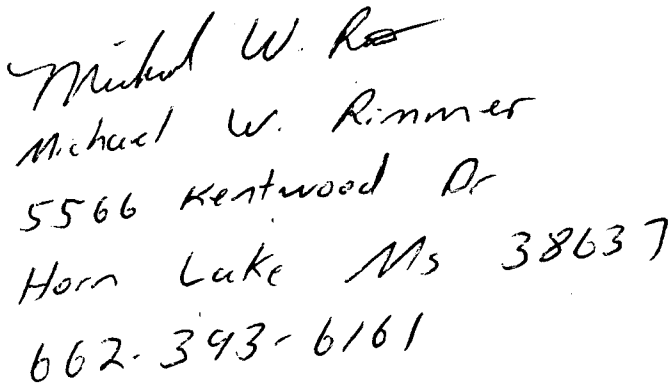 Michael W. R
Michael W. Rimmer
5566 Kentwood Dr
Horn Lake Ms 38637
662-393-6161